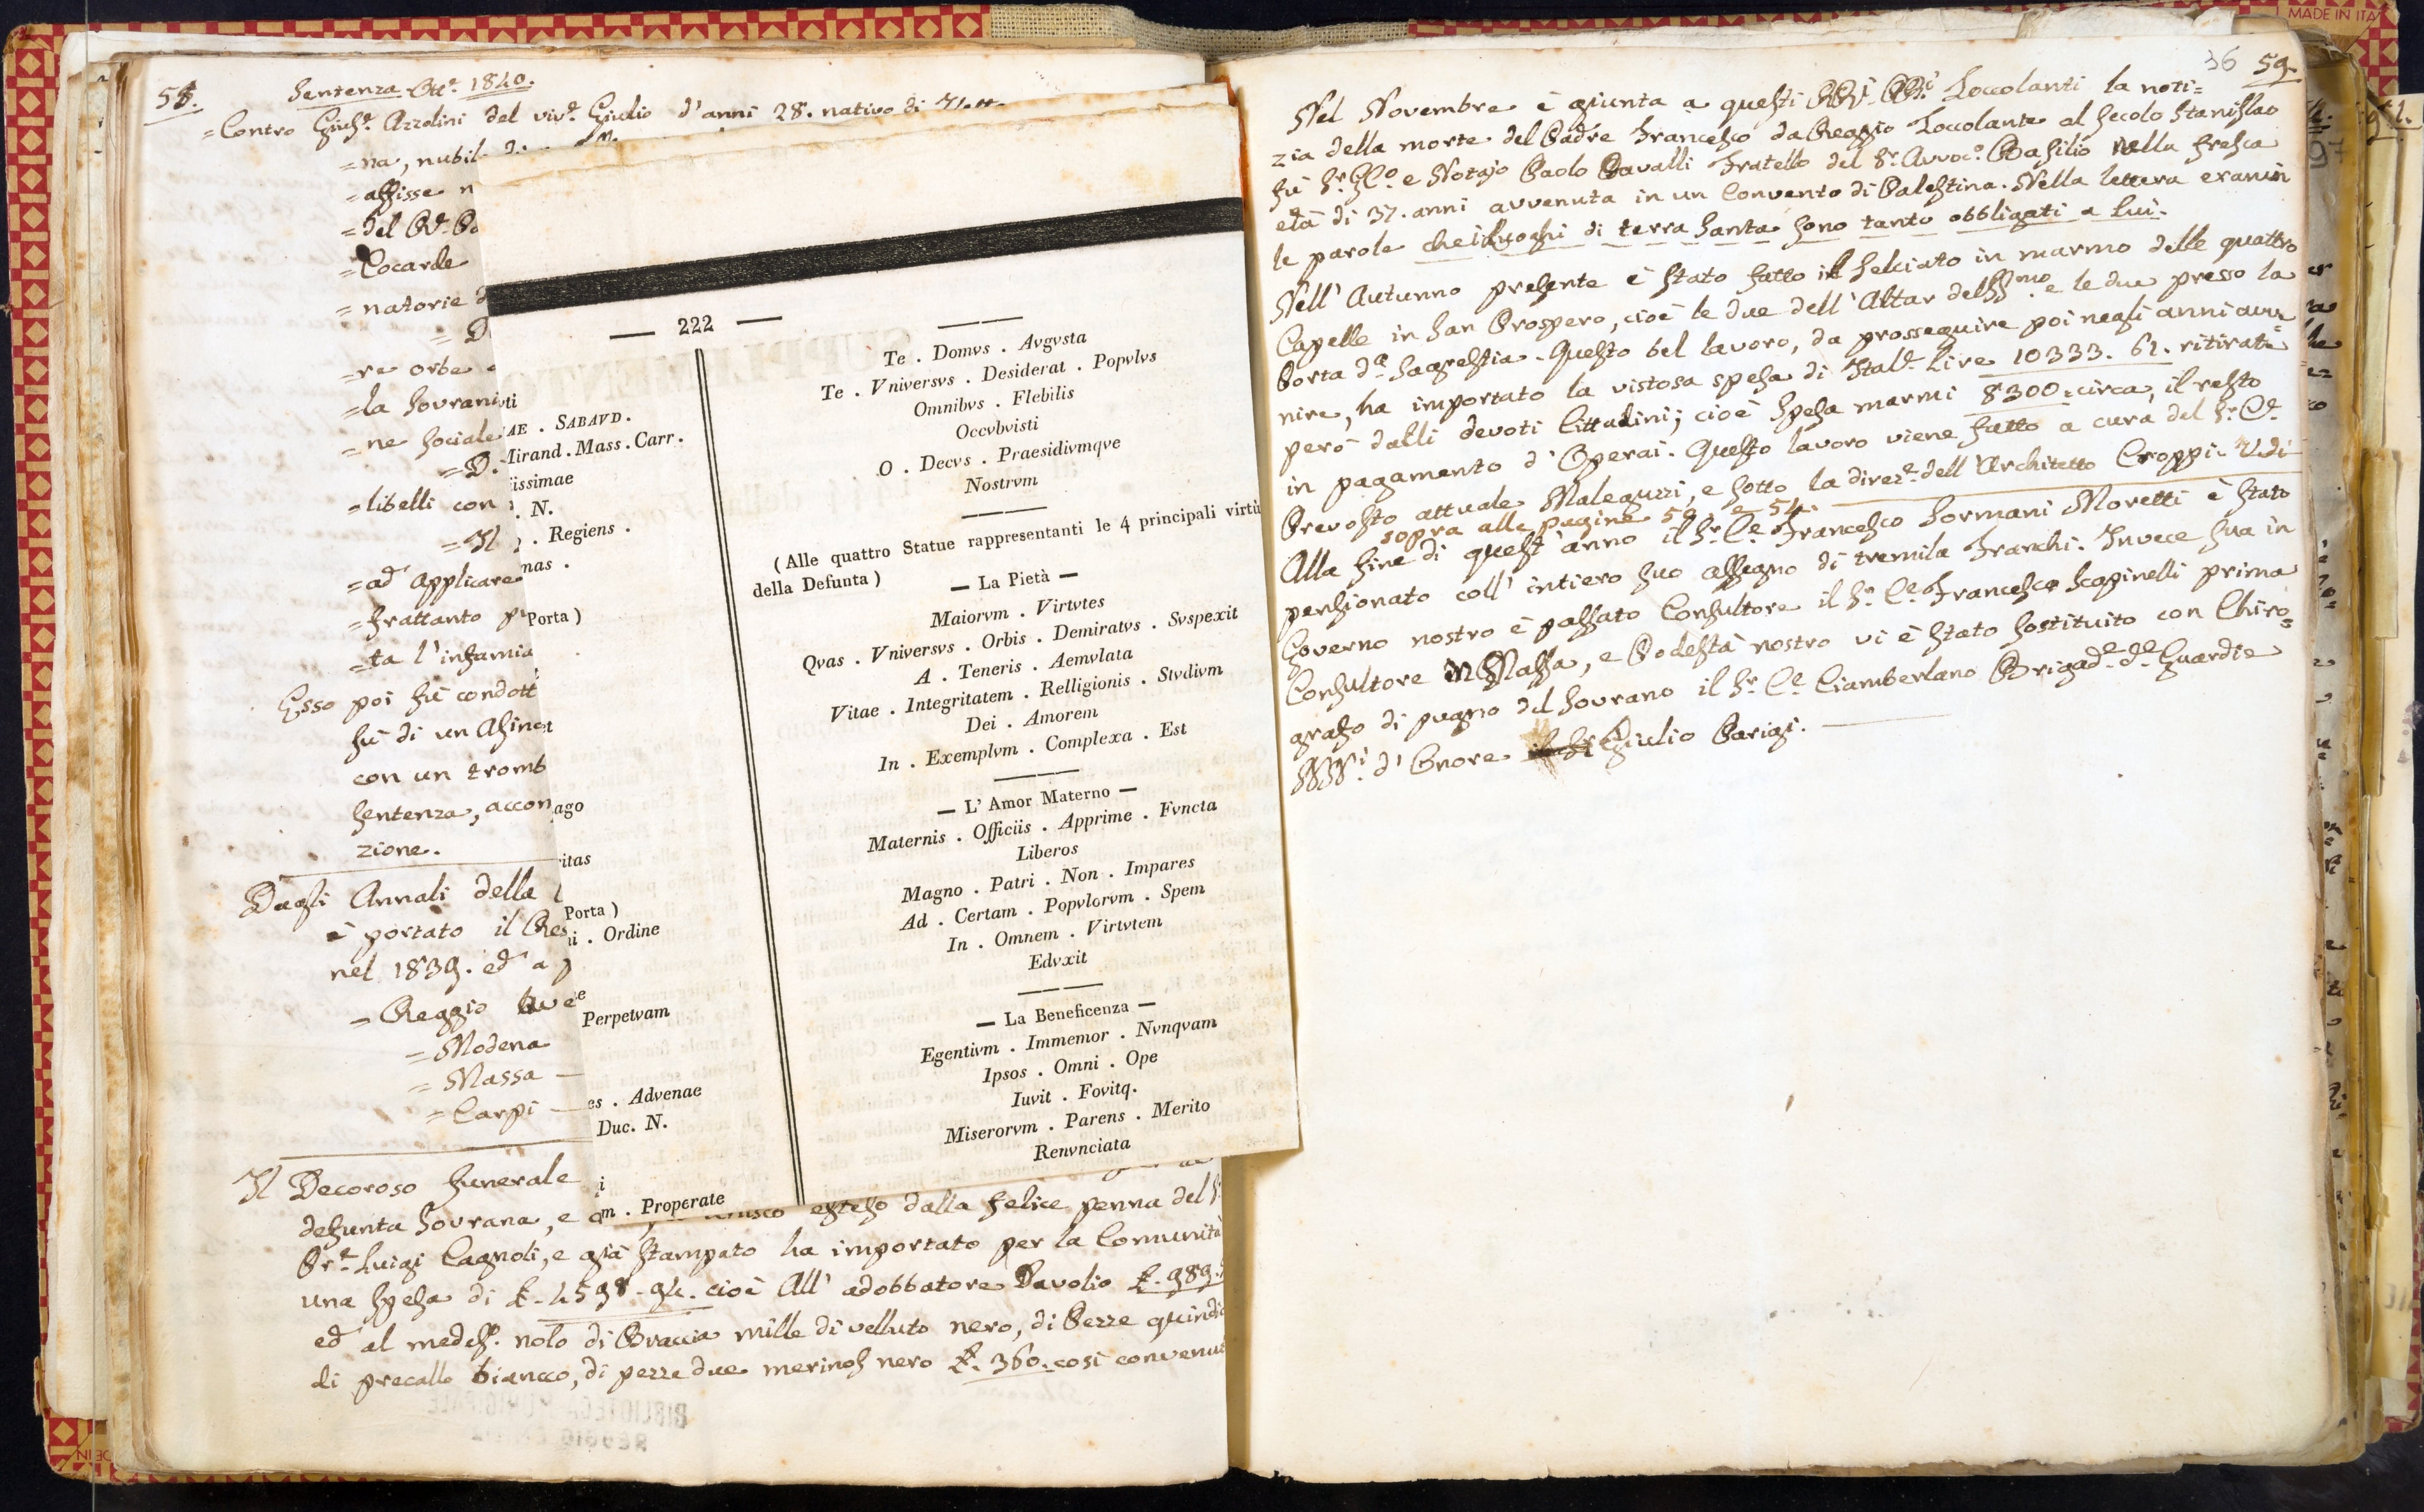 58.
Sentenza Ott.e 1840.
=Contro Gius.e Azzolini del viv.e Giulio d'anni 28. nativo di
=na, nubil
=affisse
=del
=Cocarde
=natorie
=re orbe
=la Sovrani
=ne sociale
=D.
=libelli con
=Il
=ad applicare
=frattanto
=ta l'infamia
Esso poi fù condott
fù di un Asino
con un tromb
sentenza, accom
zione.
Dagli Annali della
è portato il
nel 1839. ed a
=Reggio
=Modena
=Massa —
=Carpi —
Il Decoroso funerale
defunta Sovrana, e esteso dalla felice penna del
Pr.e Luigi Cagnoli, e già stampato ha importato per la Comunità
una spesa di £. 4598.94. cioè All' adobbatore Davolio £. 989.
ed al medes.o nolo di Braccia mille di velluto nero, di Pezze quindi
di precallo biancco, di pezze due merinos nero £. 360. così convenut
AE . SABAVD.
Mirand . Mass . Carr.
issimae
. N.
. Regiens .
mas .
Porta )
ago
itas
Porta )
i . Ordine
e
Perpetvam
es . Advenae
Duc. N.
i
m . Properate
— 222 —
Te . Domvs . Avgvsta
Te . Vniversvs . Desiderat . Popvlvs
Omnibvs . Flebilis
Occvbvisti
O . Decvs . Praesidivmqve
Nostrvm
( Alle quattro Statue rappresentanti le 4 principali virtù
della Defunta )
— La Pietà —
Maiorvm . Virtvtes
Qvas . Vniversvs . Orbis . Demiratvs . Svspexit
A . Teneris . Aemvlata
Vitae . Integritatem . Relligionis . Stvdivm
Dei . Amorem
In . Exemplvm . Complexa . Est
— L' Amor Materno —
Maternis . Officiis . Apprime . Fvncta
Liberos
Magno . Patri . Non . Impares
Ad . Certam . Popvlorvm . Spem
In . Omnem . Virtvtem
Edvxit
— La Beneficenza —
Egentivm . Immemor . Nvnqvam
Ipsos . Omni . Ope
Iuvit . Fovitq.
Miserorvm . Parens . Merito
Renvnciata
36 59.
Nel Novembre è giunta a questi RR.i PP.i Zoccolanti la noti=
zia della morte del Padre Francesco da Reggio Zoccolante al secolo Stanislao
fù S.r e Notajo Paolo Cavalli Fratello del S.r Avvoc.o Basilio nella fresca
età di 37. anni avvenuta in un Convento di Palestina. Nella lettera eranvi
le parole che i Luoghi di terra Santa sono tanto obbligati a lui.
Nell' Autunno presente è stato fatto il selciato in marmo delle quattro
Capelle in San Prospero, cioè le due dell' Altar del SS.mo e le due presso la
Porta d.a Sagrestia. Questo bel lavoro, da prosseguire poi negli anni avve=
nire, ha importato la vistosa spesa di Ital.e Lire 10333. 61. ritirate
però dalli devoti Cittadini; cioè spesa marmi 8300: circa, il resto
in pagamento d' Operai. Questo lavoro viene fatto a cura del S.r C.e
Prevosto attuale Maleguzzi, e sotto la direz.e dell' Architetto Croppi. Vedi
sopra alle pagine 50. e 54.
Alla fine di quest' anno il S.r C.e Francesco Sormani Moretti è stato
pensionato coll' intiero suo assegno di tremila Franchi. Invece sua in
Governo nostro è passato Consultore il S.r C.e Francesco Scapinelli prima
Consultore in Massa, e Podestà nostro vi è stato sostituito con Chiro=
grafo di pugno del Sovrano il S.r C.e Ciamberlano Brigad.e d.e Guardie
NN.i d' Onore Giulio Parigi.
MADE IN ITA
BIBLIOTECA MUNICIPALE
REGGIO